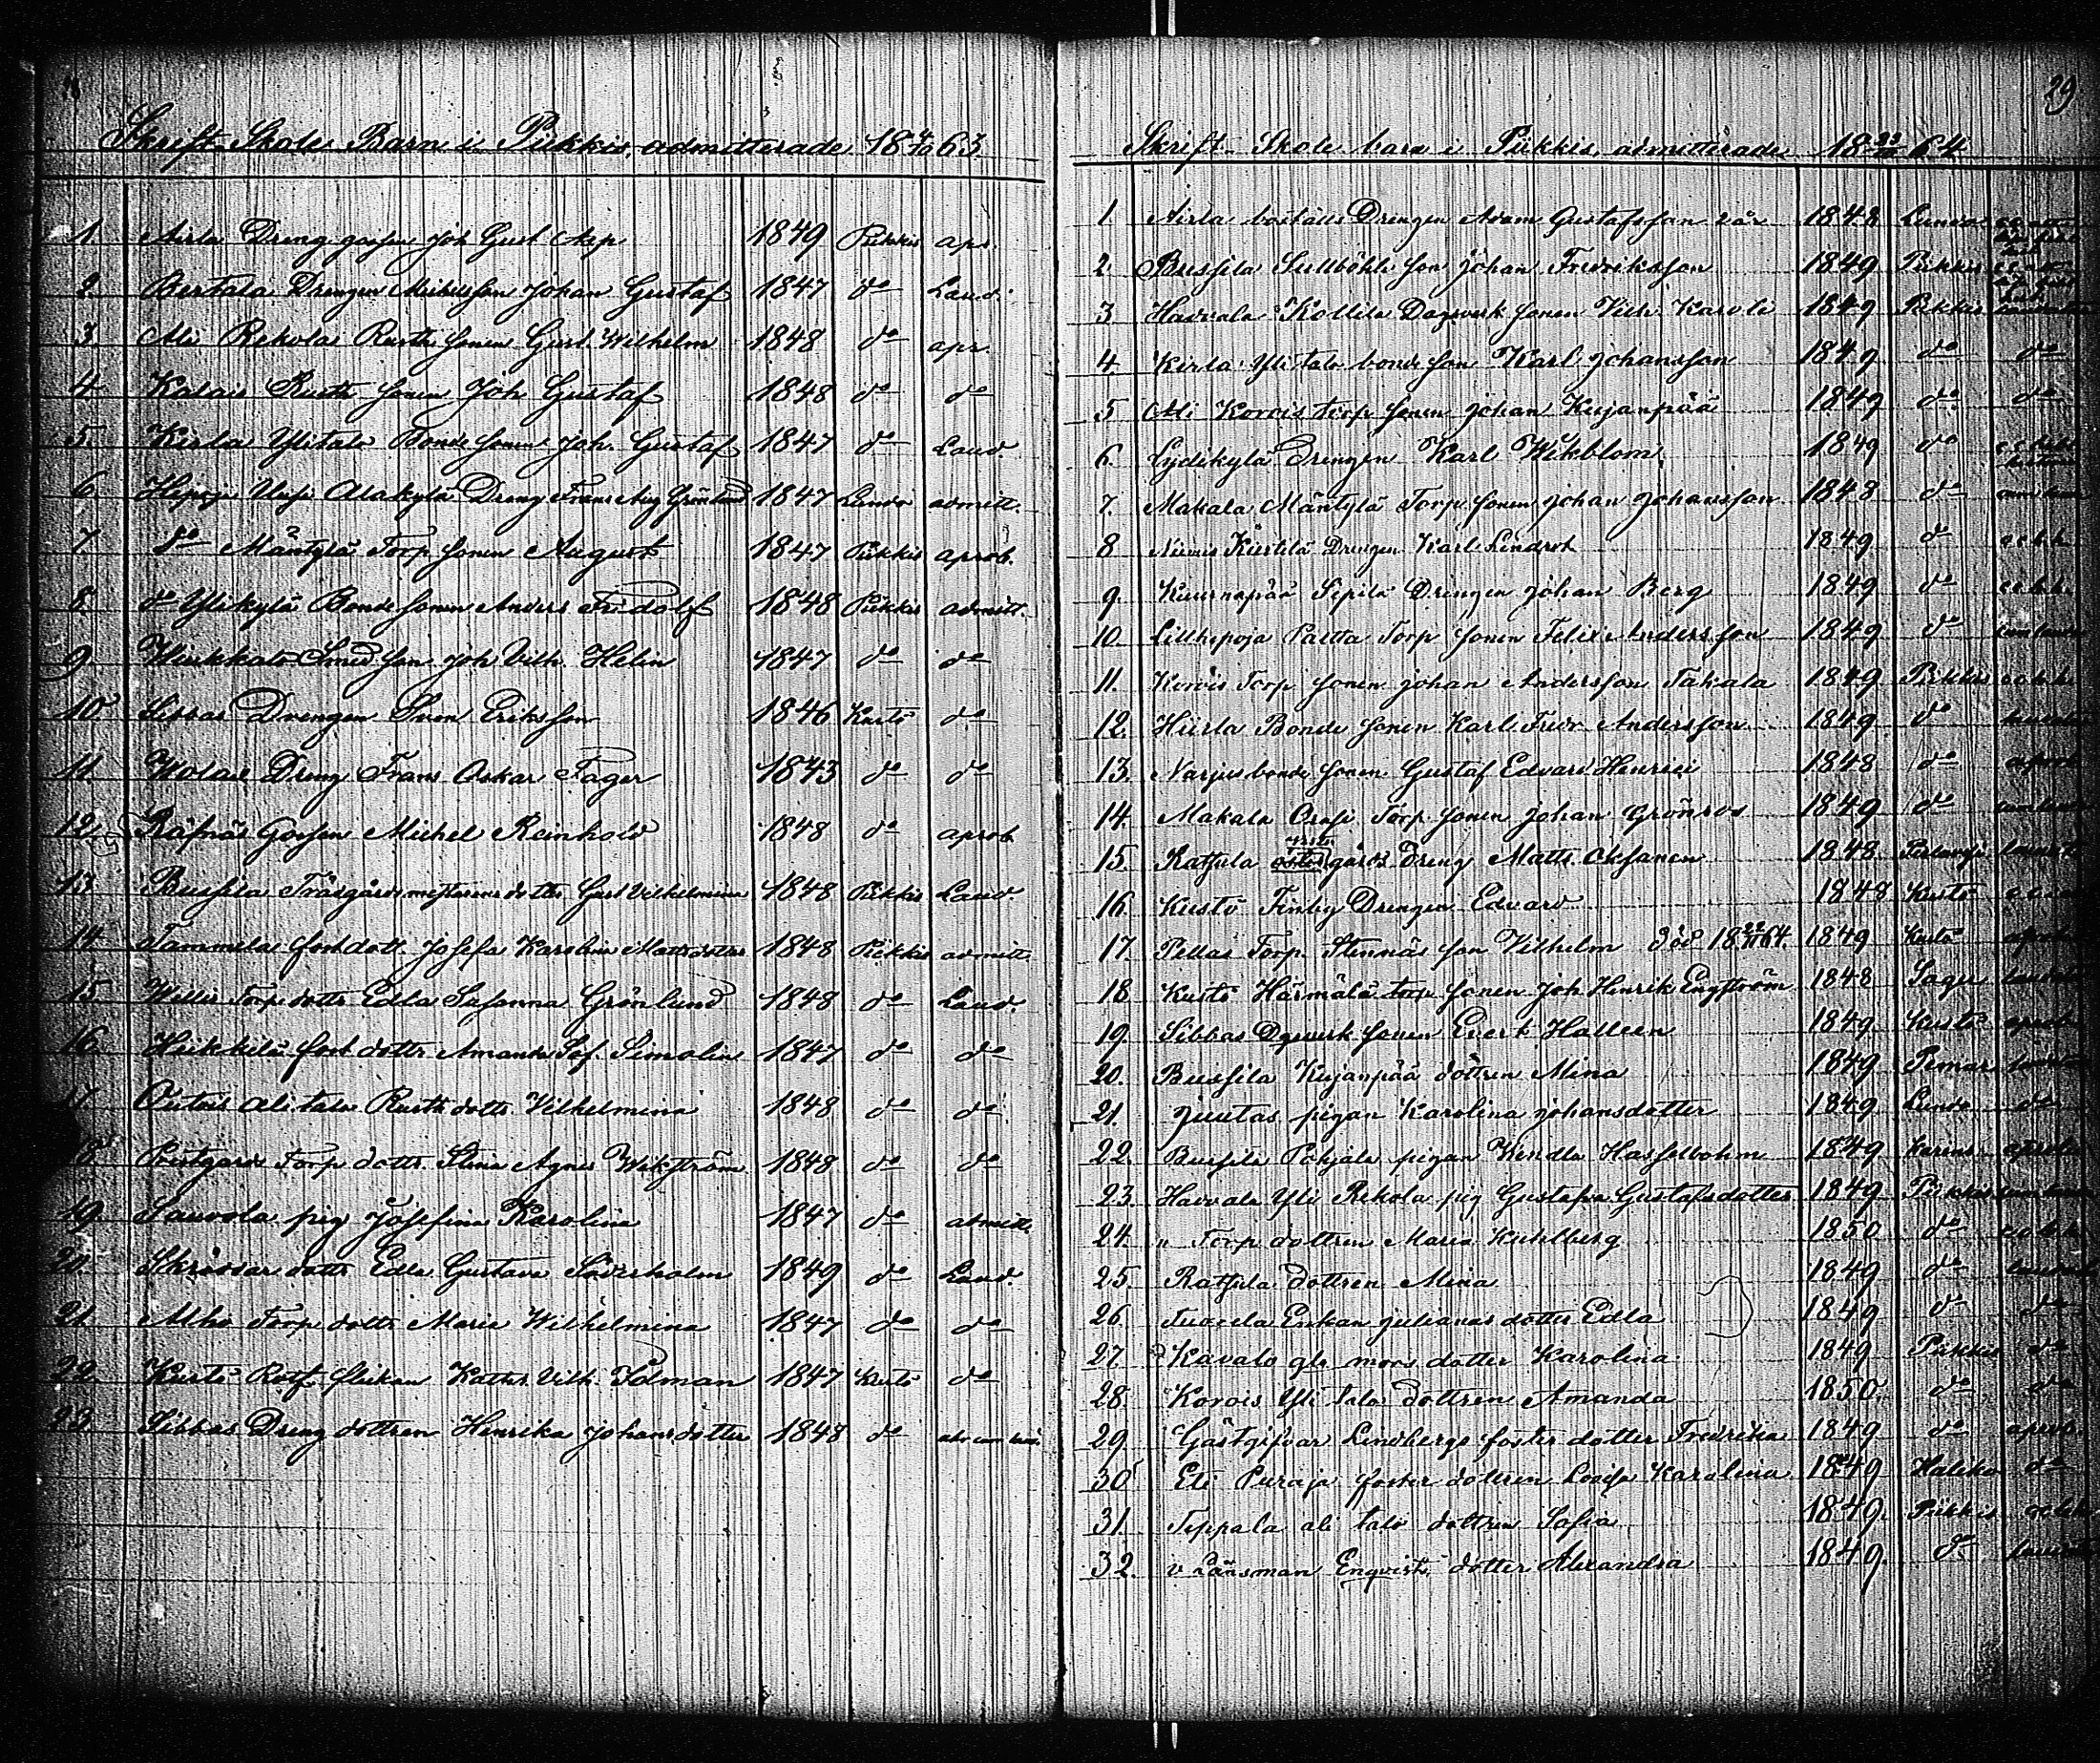 Skrift Skole Barn i Piikkis, admitterade 18 4/10 63.
1. Airla Dreng gossen Joh Gust Asp 1849 Piikkis apr.
2. Bertala Drengen Johan Gustaf 1847 do Laud.
3 Ali Rekola Rusth sonen Gust. Wilhelm 1848 do apr.
4 Kalais Rusth sonen Joh Gustaf 1848 do do
5. Kirla Ylitalo Bonde sonen Joh. Gustaf 1847 do Laud.
6 Hepoja Alakylä Dreng Frans Aug Grönlund 1847 Lundo admitt.
7 do Mäntylä Torp sonen August 1847 Piikkis aprob.
8. do Ylikylä Bonde sonen Anders Fridolf 1848 Piikkis admitt.
9 Smed son Joh Vilh. Helin 1847 do do
10 Sibbas Drengen Sven Eriksson 1846 Kustö do
11 Dreng Frans Oskar Fager 1843 do do
12 Räfnäs Gossen Michel Reinhold 1848 do aprob
13 Bussila Trägårdsmestarens dotter Gust Vilhelmina 1848 Piikkis Laud.
14 Tammela fosterdott. Josefa Karolina Mattsdotter 1848 Piikkis admitt.
15 Willis Torp dottr Edla Susanna Grönlund 1848 do Laud.
16. Heikkilä fost dottr Amanda Sof. Simolin 1847 do do
17 Ali talo Rusth dottr Vilhelmina 1848 do do
18 Prestgård Torp dottr. Stina Agnes Wikström 1848 do do
19. Sauvola pig Josefina Karolina 1847 do admitt.
20 dottr Edla Gustava Söderholm 1849 do Laud.
21 Torp dottr Maria Wilhelmina 1847 do do
22. Kustö Rotf. flickan Kathr. Vilh. Idman 1847 Kustö do
23. Sibbas Dreng dottren Henrika Johansdotter 1848 do
29
Skrift Skole barn i Piikkis, admitterade 18 23/10 64
1. Airla boställs Drengen Adam Gustafsson 1848 Lundo
2. Bussila son Johan Fredriksson 1849 Piikkis
3. Havvala Kollila Dagsverk sonen Vilh. Karoli 1849 Piikkis
4 Kirla Yli talo bonde son Karl Johansson 1849 do do
5 Ali Korois torp sonen Johan Kujanpää 1849 do do
6. Lydikylä Drengen Karl Wikblom 1849 do
7. Makala Mäntylä Torp sonen Johan Johansson 1848 do
8 Niemis Kiertilä Drengen Karl Lindrot 1849 do c.c.b.h.
9. Kuurnapää Sipilä Drengen Johan Berg 1849 do c.c.b.h.
10. Lillhepoja Paltta Torp sonen Felix Andersson 1849 do
11. Korois Torp sonen Johan Andersson Takala 1849 Piikkis c.c.b.h.
12. Hiirla Bonde sonen Karl Fredr Andersson 1849 do
13. Narjus bonde sonen Gustaf Edvard Henrici 1848 do aprob
14. Makala Torp sonen Johan Grönros 1849 do
15. Ratsula gårds Dreng Matts Oksanen 1848
16. Kustö Finby Drengen Edvard 1848 Kustö
17. Pellas Torp. Stennäs son Vilhelm död 18 64. 1849 Kustö aprob
18 Kustö Härmälä torp sonen Joh Henrik Engström 1848 Sagu
19. Sibbas Dgsverk sonen Evert Hallén 1849 Kustö aprob
20. Bussila Kujanpää dottren Mina 1849 Pemar
21. Juntas pigan Karolina Johansdotter 1849 Lundo do
22. Bussila Pohjala pigan Vendla Hasselbohm 1849 Karins aprob
23. Havvala Yli Rekola pig Gustafva Gustafsdotter 1849 Piikkis
24. " Torp dottren Maria Kuhlberg 1850 do c.c.b.h.
25. Ratsula dottren Mina 1849 do
26. Enkan Julianas dotter Edla 1849 do do
27 Kavalo mors dotter Karolina 1849 Piikkis do
28. Korois Yli talo dottren Amanda 1850. do do
29 Gästgifvar Lindbergs foster dotter Fredrika 1849 do aprob.
30 foster dottren Lovisa Karolina 1849 Haliko do
31. Teppala ali talo dottren Sofia 1849. Piikkis
32. v Länsman Enqvists dotter Alexandra 1849. do